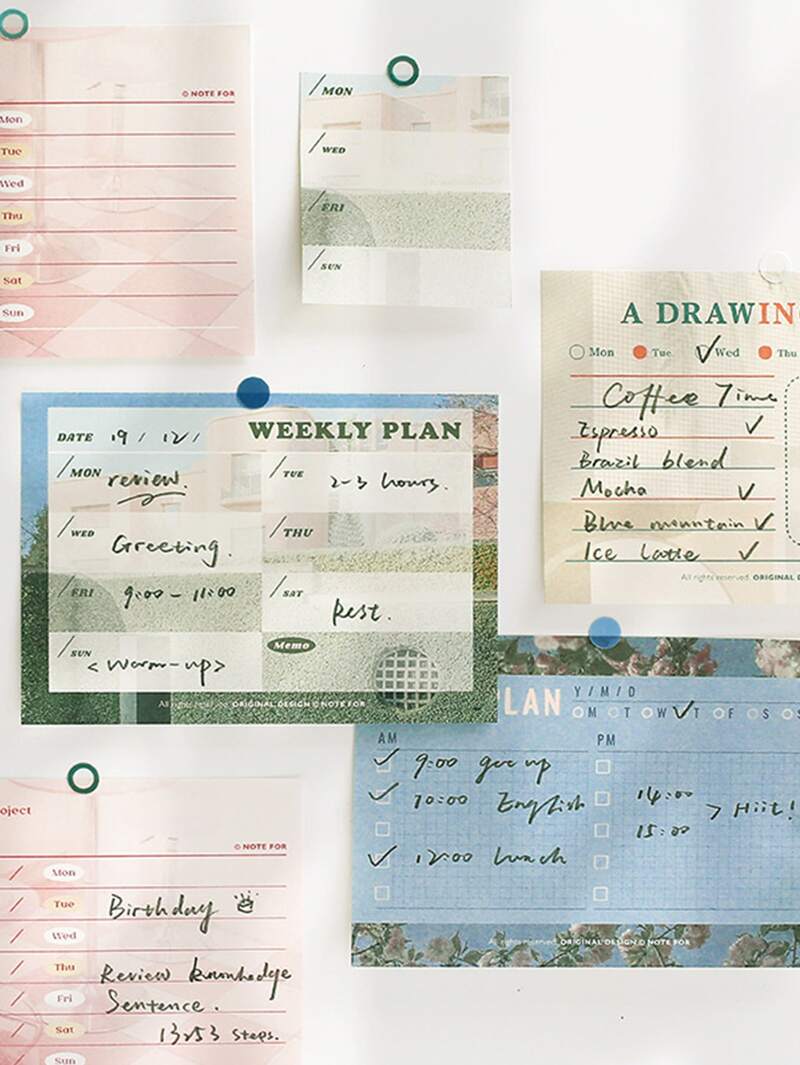 © NOTE FOR
Mon
Tue
Wed
Thu
Fri
Sat
Sun
/ MON
/ WED
/ FRI
/ SUN
A DRAWING
Mon Tue Wed Thu
Coffee Time
Espresso
Brazil blend
Mocha
Blue mountain
Ice latte
All rights reserved. ORIGINAL D
DATE 19 / 12 / WEEKLY PLAN
/ MON review. / TUE 2-3 hours.
/ WED Greeting. / THU
/ FRI 9:00 - 11:00 / SAT Rest.
/ SUN < Warm-up > Memo
All rights reserved. ORIGINAL DESIGN © NOTE FOR
PLAN Y / M / D
M T W T F S S
AM PM
9:00
10:00 English 14:00 > Hiit!
15:00
12:00 lunch
All rights reserved. ORIGINAL DESIGN © NOTE FOR
oject
© NOTE FOR
/ Mon
/ Tue Birthday
/ Wed
/ Thu Review knowhedge
/ Fri Sentence.
/ Sat 13253 steps.
Sun